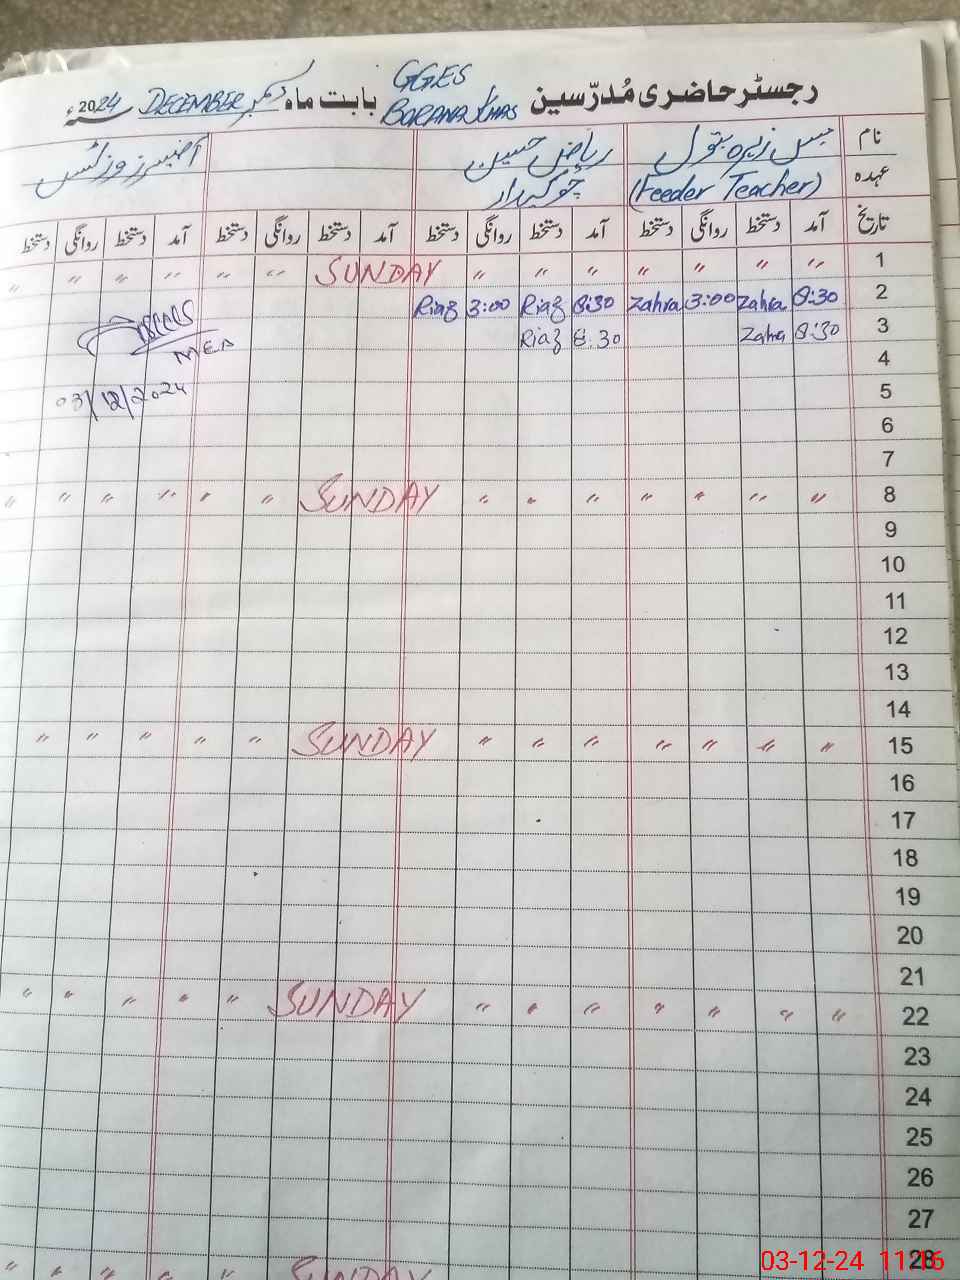 رجسٹر حاضری مُدرّسین GGES BORANA KHAS بابت ماہ دسمبر DECEMBER 2024ء
نام مس زہرہ بتول ریاض حسین آفیسرز وزٹس
عہدہ (Feeder Teacher) چوکیدار
تاریخ آمد دستخط روانگی دستخط آمد دستخط روانگی دستخط آمد دستخط روانگی دستخط آمد دستخط روانگی دستخط
1 〃 〃 〃 〃 〃 〃 〃 SUNDAY 〃 〃 〃 〃 〃 〃
2 8:30 Zahra 3:00 Zahra 8:30 Riaz 3:00 Riaz
3 8:30 Zahra 8:30 Riaz
MEA
4
5 03/12/2024
6
7
8 〃 〃 〃 〃 〃 〃 〃 SUNDAY 〃 〃 〃 〃 〃 〃
9
10
11
12
13
14
15 〃 〃 〃 〃 〃 〃 〃 SUNDAY 〃 〃 〃 〃 〃
16
17
18
19
20
21
22 〃 〃 〃 〃 〃 〃 〃 SUNDAY 〃 〃 〃 〃 〃
23
24
25
26
27
28
SUNDAY 〃 〃 〃 〃 〃
03-12-24 11:16